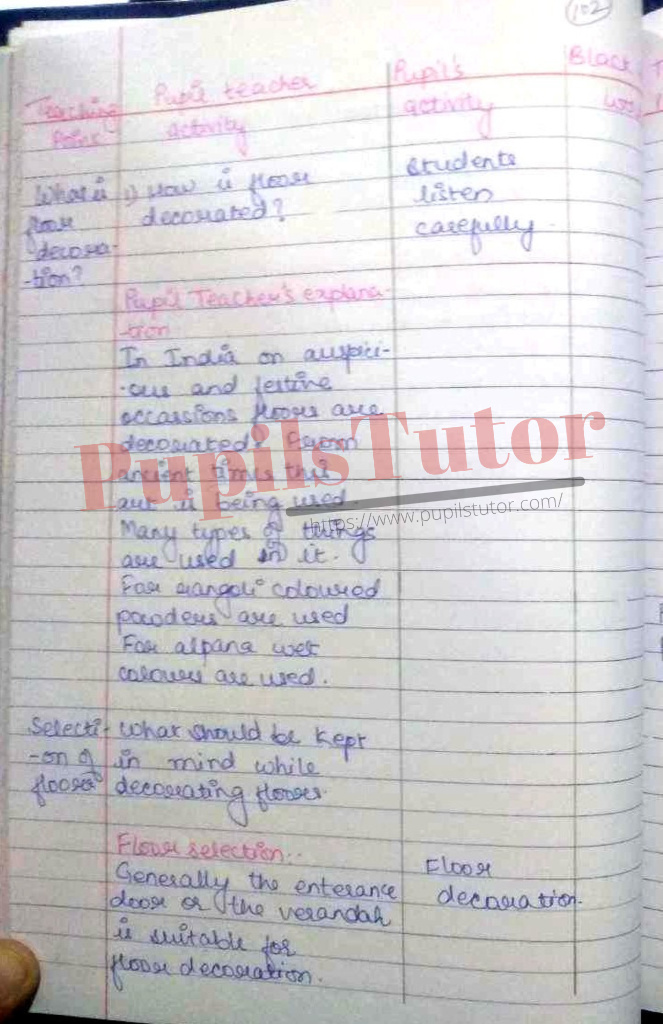 102
Teaching Point
Pupil teacher activity
Pupil's activity
Black
What is floor decora-
-tion?
1) How is floor
decorated?
Students
listen
carefully.
Pupil Teacher's explana-
-tion
In India on auspici-
-ous and festive
occassions floors are
decorated. From
ancient times this
art is being used.
Many types of things
are used in it.
For rangoli coloured
powders are used
For alpana wet
colours are used.
PupilsTutor
https://www.pupilstutor.com/
Selecti-
-on of
floor
What should be kept
in mind while
decorating floors.
Floor selection..
Generally the enterance
door or the verandah
is suitable for
floor decoration.
Floor
decoration.